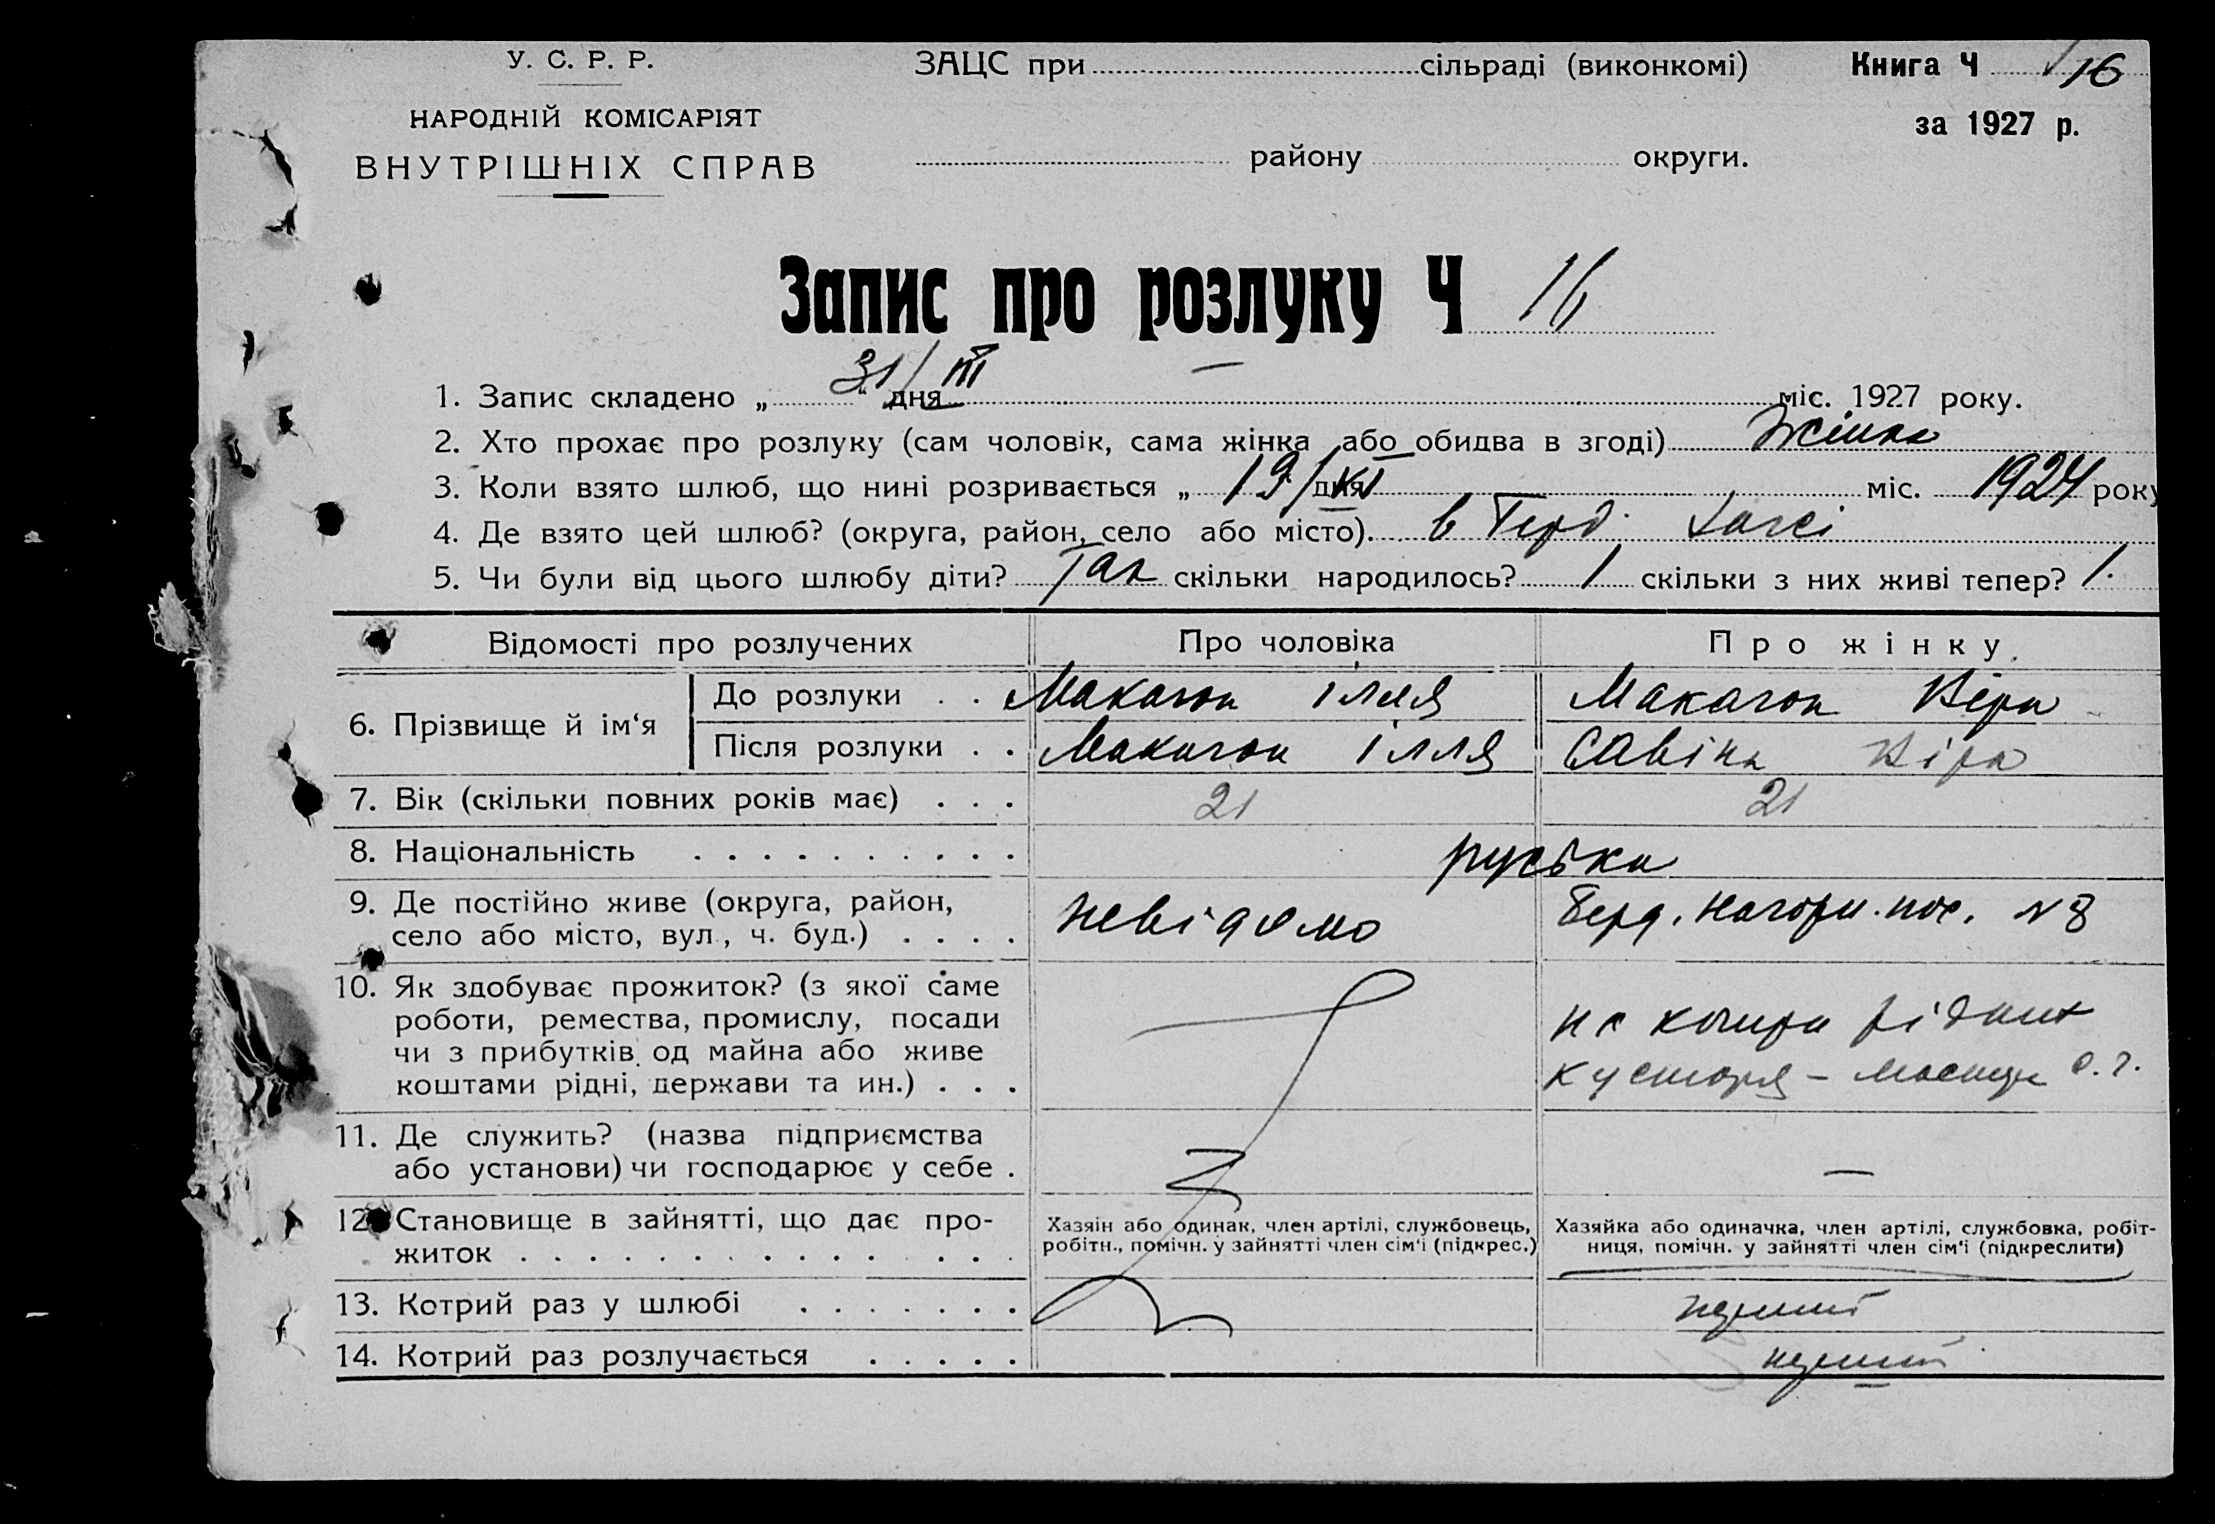 У. С. Р. Р.
НАРОДНІЙ КОМІСАРІЯТ
ВНУТРІШНІХ СПРАВ
ЗАЦС при сільраді (виконкомі)
району округи.
Книга Ч 16
за 1927 р.
Запис про розлуку Ч 16
1. Запис складено „ 31/III " дня міс. 1927 року.
2. Хто прохає про розлуку (сам чоловік, сама жінка або обидва в згоді) Жінка
3. Коли взято шлюб, що нині розривається „ 19/XI дня міс. 1924 року
4. Де взято цей шлюб? (округа, район, село або місто). в Берд. Загсі
5. Чи були від цього шлюбу діти? Так скільки народилось? 1 скільки з них живі тепер? 1.
Відомості про розлучених Про чоловіка Про жінку.
6. Прізвище й ім‘я
До розлуки . . Макагон Ілля Макагон Віра
Після розлуки . . Макагон Ілля Савіна Віра
7. Вік (скільки повних років має) . . . 21 21
8. Національність . . . . . . . . . . руська
9. Де постійно живе (округа, район,
село або місто, вул., ч. буд.) . . . . невідомо Берд. Нагорн. пос. № 8
10. Як здобуває прожиток? (з якої саме
роботи, ремества, промислу, посади
чи з прибутків од майна або живе
коштами рідні, держави та ин.) . . .
на кошти рідних
кустаря –
11. Де служить? (назва підприємства
або установи) чи господарює у себе . —
12. Становище в зайнятті, що дає про-
житок . . . . . . . . . . . . . . . .
Хазяїн або одинак, член артілі, службовець,
робітн., помічн. у зайнятті член сім‘ї (підкрес.)
Хазяйка або одиначка, член артілі, службовка, робіт-
ниця, помічн. у зайнятті член сім‘ї (підкреслити)
13. Котрий раз у шлюбі . . . . . . . перший
14. Котрий раз розлучається . . . . . перший